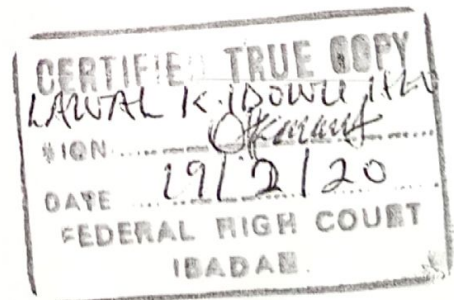 CERTIFIED TRUE COPY
LAWAL K. IDOWU
SIGN
DATE 19/2/20
FEDERAL HIGH COURT
IBADAN.